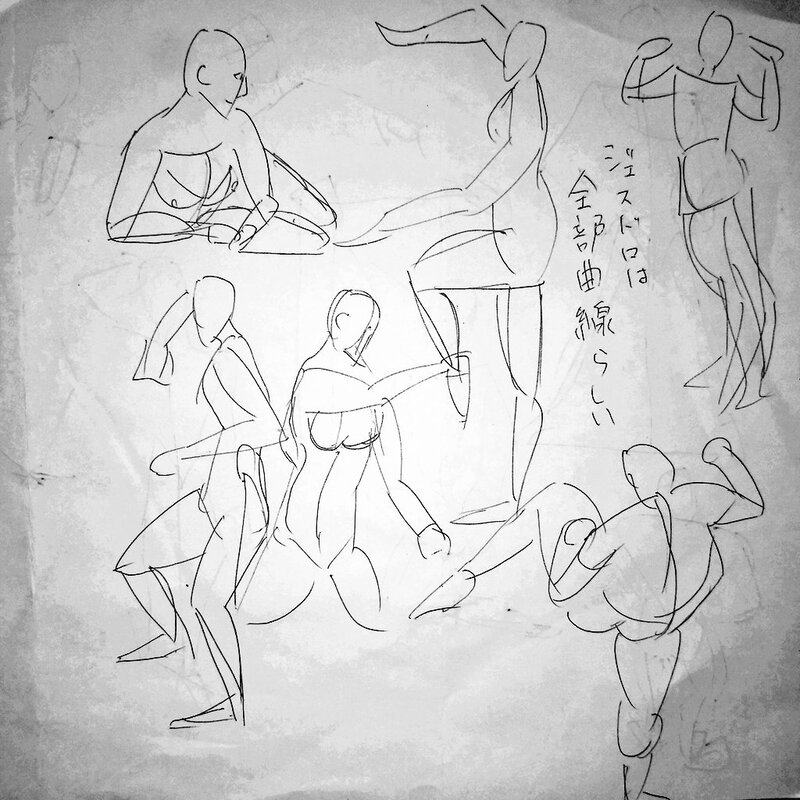 ジェスドロは
全部曲線らしい